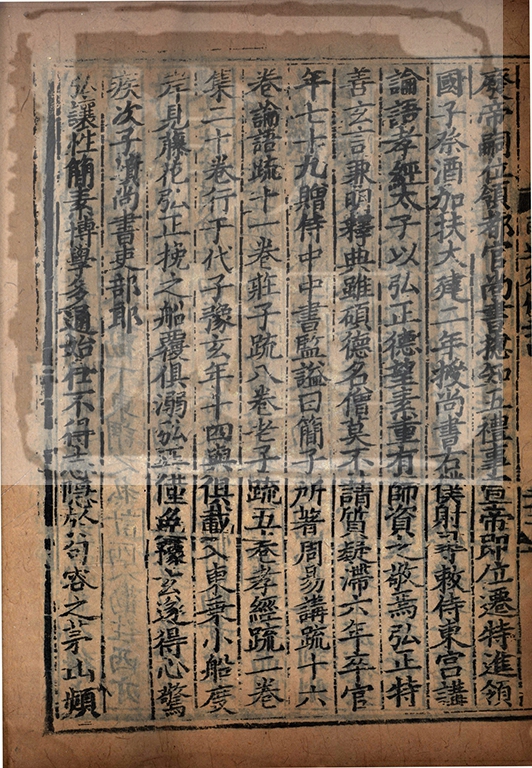 廢帝嗣位領都官尚書揔知五禮事宣帝即位遷特進領
國子祭酒加扶大建二年授尚書右僕射尋敕侍東宮講
論語孝經太子以弘正德望素重有師資之敬焉弘正特
善玄言兼明釋典雖碩德名僧莫不請質疑滯六年卒官
年七十九贈侍中中書監謚曰簡子所著周易講疏十六
卷論語疏十一卷莊子疏八卷老子疏五卷孝經疏二卷
集二十卷行于代子豫玄年十四與俱載入東乗小船度
岸見藤花弘正挽之船覆俱溺弘正僅免豫玄遂得心驚
疾次子墳尚書吏部郎
弘讓性簡素博學多通始仕不得志隱於句容之茅山頻